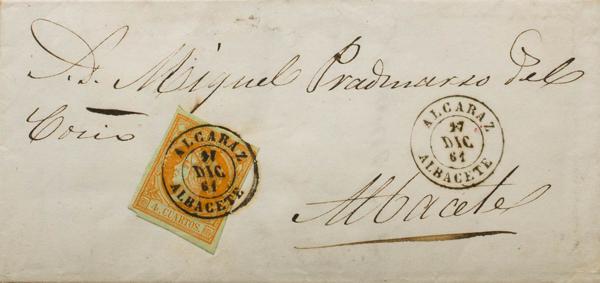 A. D. Miguel Pradmarzo del
ALCARAZ
27
DIC
61
ALBACETE
4 CUARTOS.
ALCARAZ
27
DIC
61
ALBACETE
Albacete